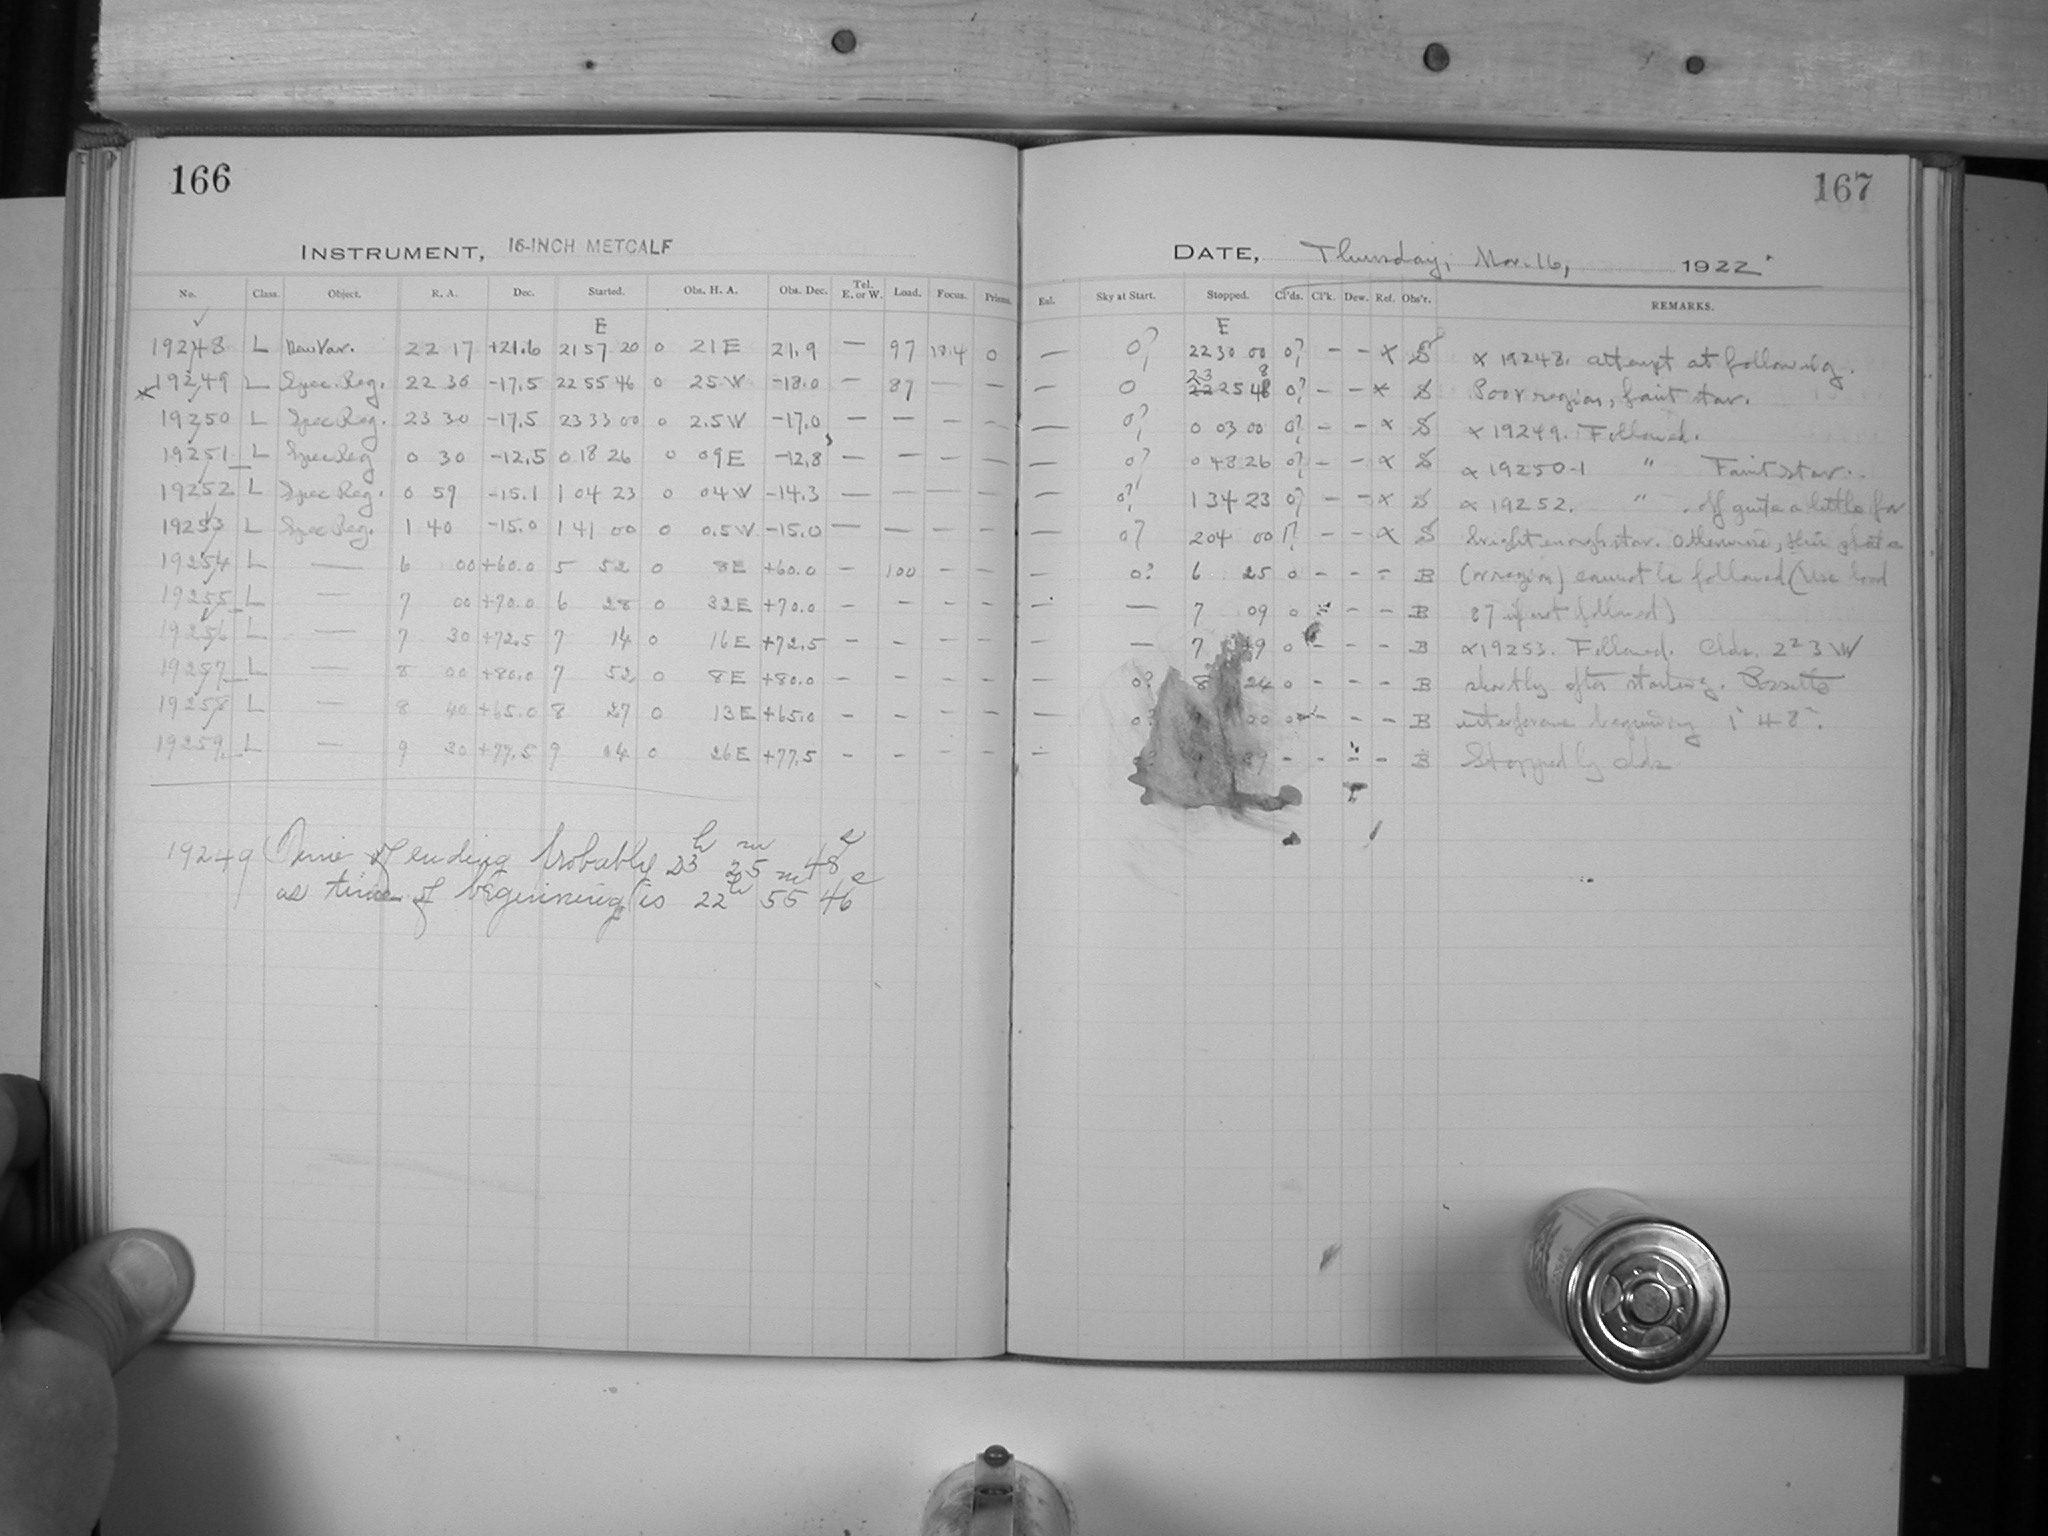 166
INSTRUMENT, 16-INCH METCALF
No. Class. Object. R. A. Dec. Started. Obs. H. A. Obs. Dec. Tel. E. or W. Load. Focus. Prisms.
E
19248 L New Var. 22 17 +21.6 21 57 20 0 21 E 21.9 — 97 18.4 0
19249 L Spec. Reg. 22 30 -17.5 22 55 46 0 25 W -18.0 — 87 — —
19250 L Spec Reg. 23 30 -17.5 23 33 00 0 2.5 W -17.0 — — — —
19251 L Spec Reg 0 30 -12.5 0 18 26 0 09 E -12.8 — — — —
19252 L Spec Reg. 0 59 -15.1 1 04 23 0 04 W -14.3 — — — —
19253 L Spec Reg. 1 40 -15.0 1 41 00 0 0.5 W -15.0 — — — —
19254 L — 6 00 +60.0 5 52 0 8 E +60.0 — 100 — —
19255 L — 7 00 +70.0 6 28 0 32 E +70.0 - - - -
19256 L — 7 30 +72.5 7 14 0 16 E +72.5 - - - -
19257 L — 8 00 +80.0 7 52 0 8 E +80.0 - - - -
19258 L — 8 40 +65.0 8 27 0 13 E +65.0 - - - -
19259 L — 9 30 +77.5 9 04 0 26 E +77.5 - - - -
19249 Time of ending probably 23h 25m 48s
as time of beginning is 22h 55m 46s
167
DATE, Thursday, Nov. 16, 1922
Sky at Start. Stopped. Cl'ds. Cl'k. Dew. Ref. Obs'r. REMARKS.
E
— 0? 22 30 00 0? - - x S x 19248. attempt at following.
23 8
— 0 22 25 48 0? - - x S Poor region, faint star.
— 0? 0 03 00 0? - - x S x 19249. Followed.
— 0? 0 48 26 0? - - x S x 19250-1 " Faint star.
— 0? 1 34 23 0? - - x S x 19252. " . Off quite a little for
— 0? 2 04 00 1? - - x S bright enough star. Otherwise, this plate
— 0? 6 25 0 - - - B (or region) cannot be followed (Use load
— — 7 09 0 - - B 87 if not followed)
— 7 0 - - - B x 19253. Followed. Clds. 2 2 3 W
— 0? 8 24 0 - - - B shortly after starting.
— 0? 00 0 - - - B interference beginning 1h 48m.
— - - - - B Stopped by clds